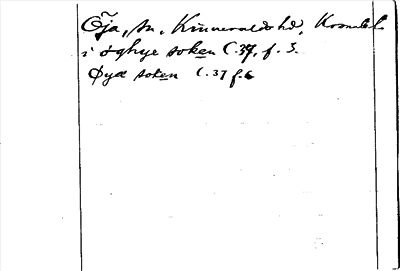 Öja, sn, Kinnevalds hd, Kronob. l.
i øghye soken C. 37, f. 5.
Øyæ soken C. 37 f. 6